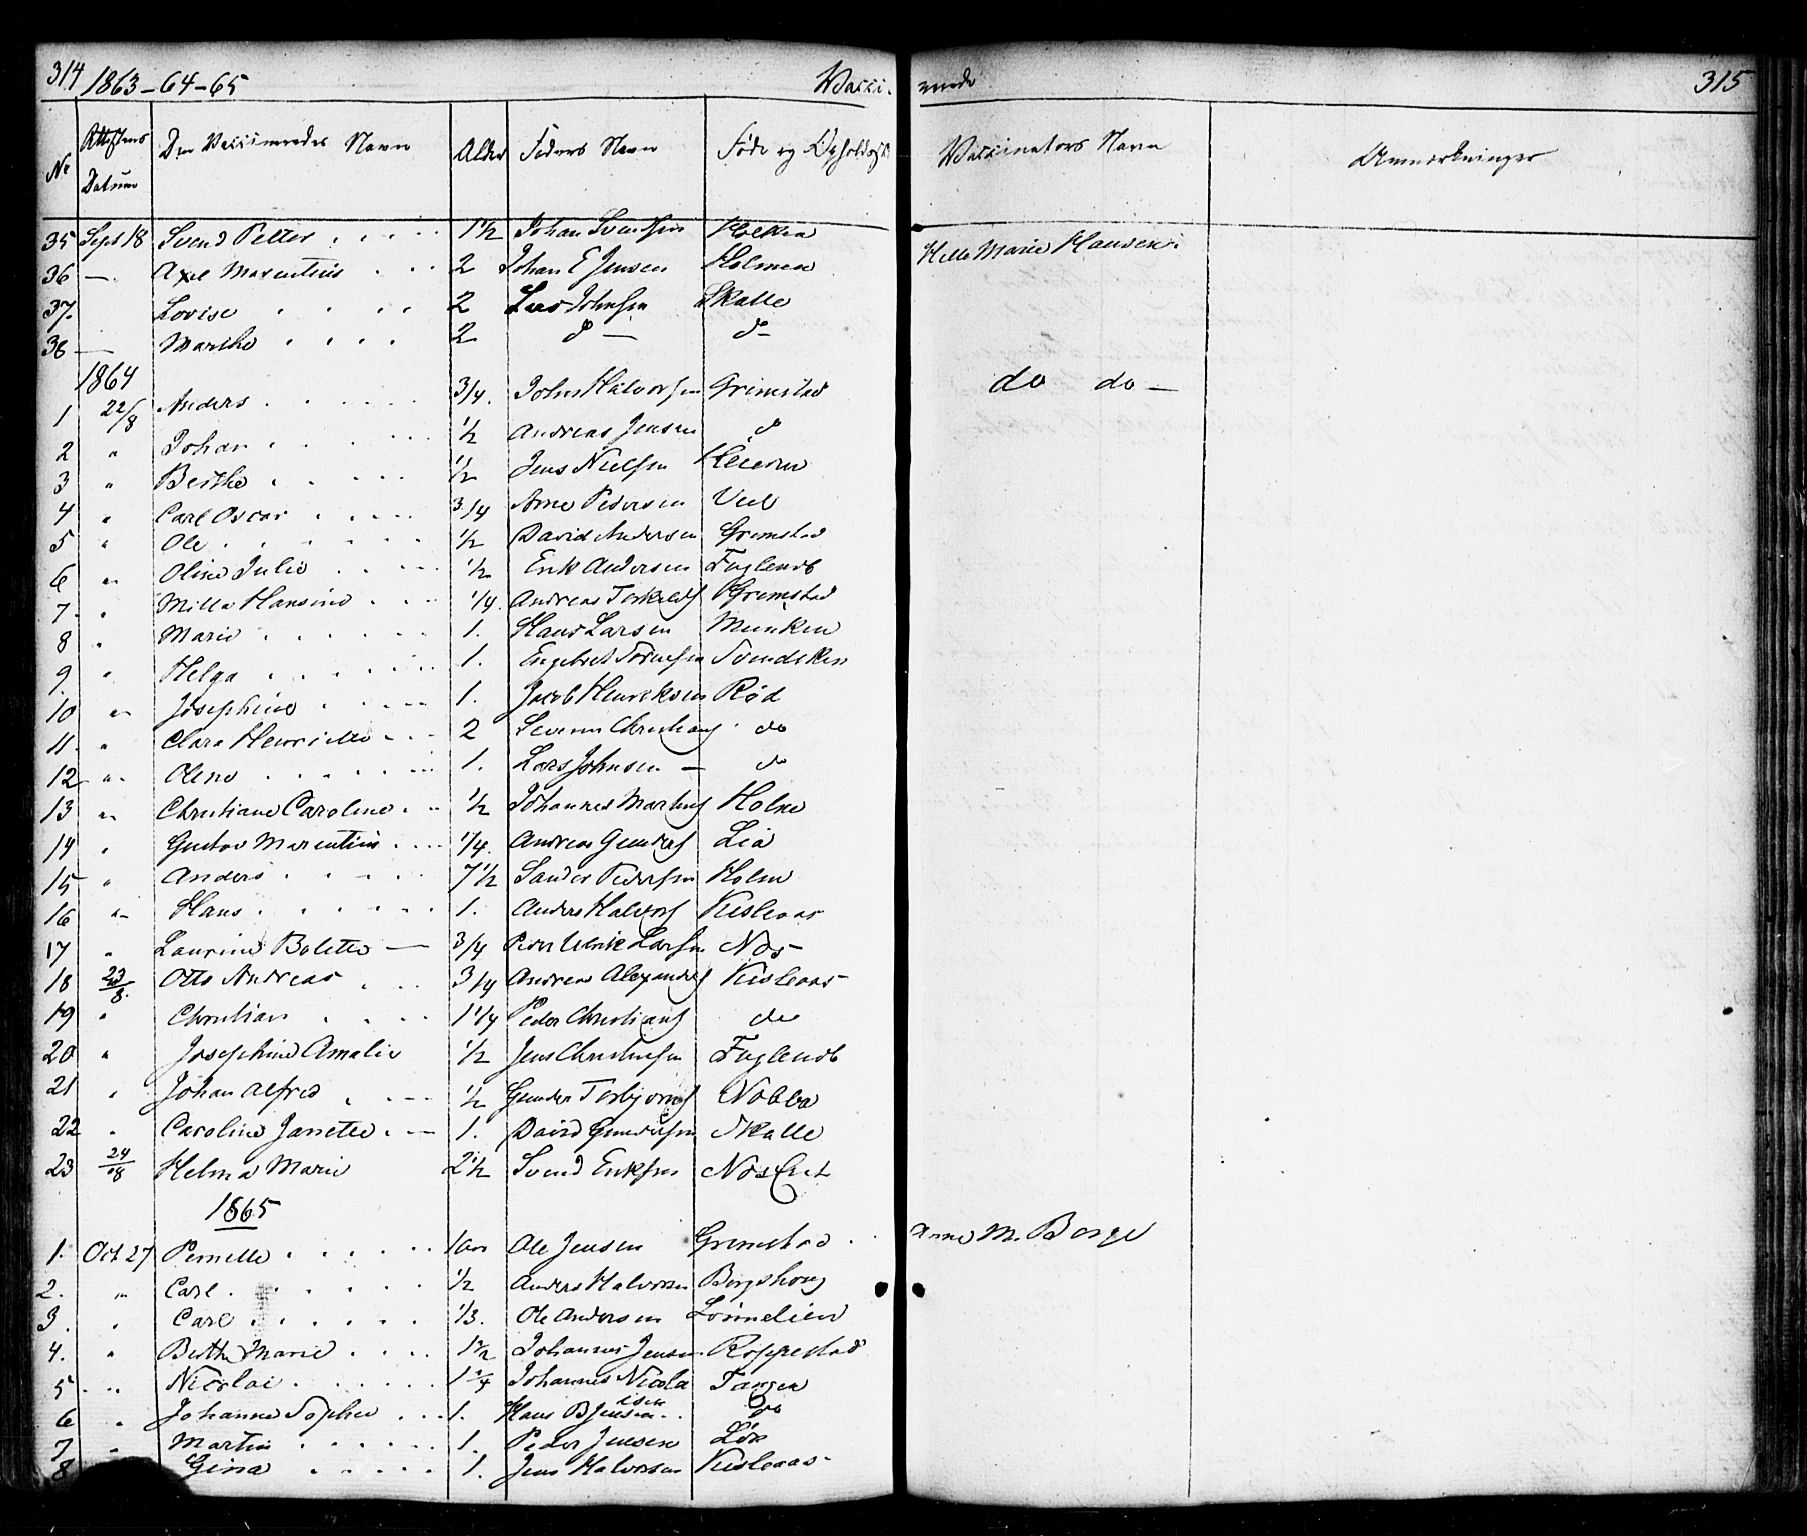 314 1863-64-65 Vacci-
No Attestens Datum Den Vaccineredes Navn Alder Faders Navn Føde og Opholdsst
35 Sept 18 Svend Petter 1 1/2 Johan Svendsen
36 — Axel Marentius 2 Johan E Jensen Holmen
37. Lovise 2 Lars Johnsen Skalle
38 — Marthe 2 do — do
1864
1 22/8 Anders 3/4. John Halvorsen Grimstad
2 " Johan 1/2 Andreas Jensen do
3 " Berthe 1/2 Jens Nielsen
4 " Carl Oscar 3/4 Arne Pedersen
5 " Ole 1/2 David Andersen Grimstad
6 " Oline Julie 1/2 Erik Andersen Fuglevik
7. " Mille Hansine 1/4. Andreas Torkelds Grimstad
8 " Marie 1. Hans Larsen Munken
9 " Helga 1. Engebret Svendsken
10 " Josephine 1. Jacob Henriksen Rød
11. " Clara Henriette 2 Severin Christians do
12 " Oleno 1. Lars Johnsen — do
13 " Christiane Caroline 1/2 Johannes Martins Holme
14 " Gustav Marentius 1/4. Andreas Gunders Lia
15 " Anders 7 1/2 Sander Pedersen Holm
16 " Hans 1. Anders Halvors Kisleaas
17 " Laurine Bolette — 3/4 Peder Ulrik Larsen Nøs
18 23/8. Otto Andreas 3/4 Andreas Alexanders Kisleaas
19 " Christian 1 1/4 Peder Christians do
20 " Josephine Amalie 1/2 Jens Christensen Fuglevik
21 " Johan Alfred 1/2 Gunder Torbjørns Nabba
22 " Caroline Janette 1. David Gundersen Skalle
23 24/8 Helma Marie 2 1/2 Svend Eriksen
1865
1. Oct 27 Pernille Ole Jensen Grimstad
2. " Carl 1/2 Anders Halvorsen Borgshoug
3. " Carl 1/3. Ole Andersen
4. " Berthe Marie Johannes Jensen Roppestad
5 " Nicolai Johannes Nicola Tangen
6 " Johanne Sophie 1. Hans B Jensen do
7 " Martin 1. Peder Jensen
8 Gina 1. Jens Halvorsen Kisleaas
nerede 315
Vaccinators Navn Anmærkninger
Helle Marie Hansen
do do —
Anne M. Borge